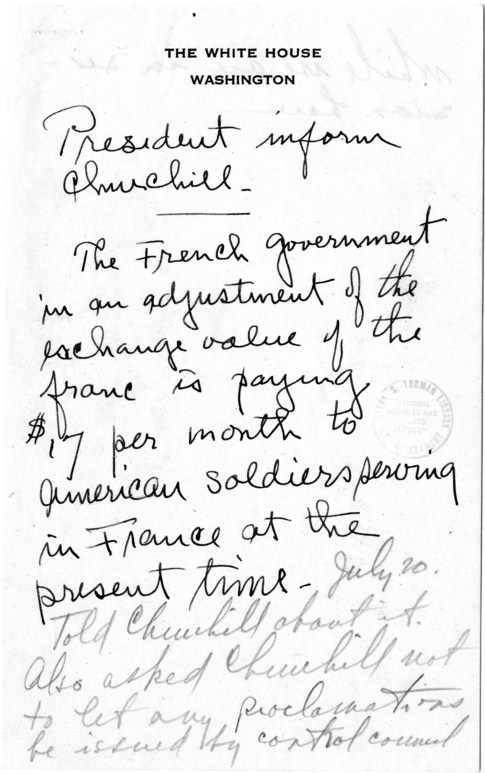 THE WHITE HOUSE
WASHINGTON
President inform
Churchill_
The French government
in an adjustment of the
exchange value of the
franc is paying
$17 per month to
American soldiers serving
in France at the
present time - July 20.
Told Churchill about it.
Also asked Churchill not
to let any proclamations
be issued by control council
TRUMAN LIBRARY